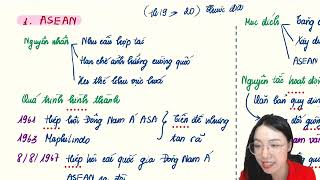 (tk 19 → 20) thuộc địa
1. ASEAN
Nguyên nhân
Nhu cầu hợp tác
Hạn chế ảnh hưởng cường quốc
Xu thế khu vực hoá
Quá trình hình thành
1961 Hiệp hội Đông Nam Á ASA
1963 Maphilindo
Tiền đề nhưng
tan rã
8/8/1967 Hiệp hội các quốc gia Đông Nam Á
ASEAN ra đời
Mục đích
Xây
Nguyên tắc hoạt
Văn bản quy